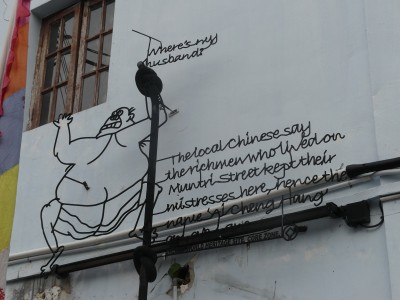 Where's my
husband?
The local Chinese say
the richmen who lived on
Muntri Street kept their
mistresses here, hence the
name 'Ai Cheng Hang'